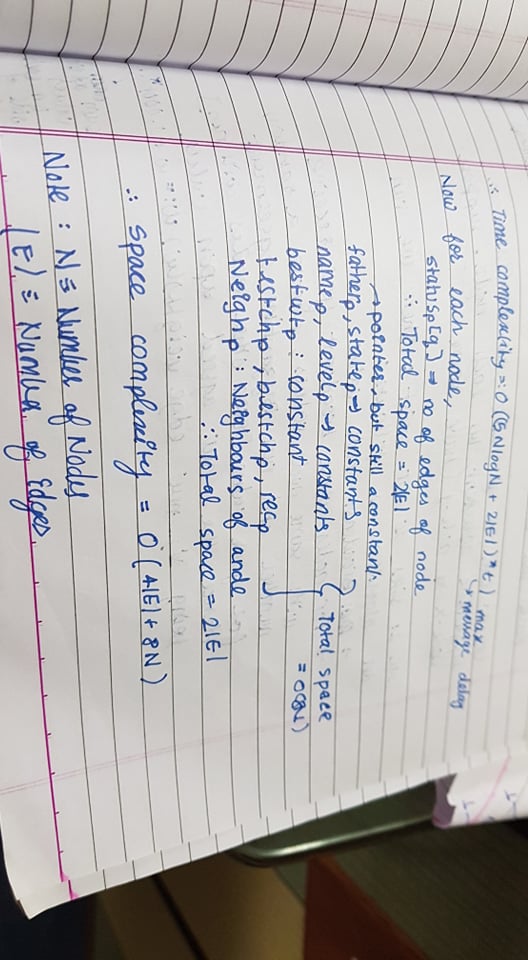 ∴ Time complexity = O((5NlogN + 2|E|) * t) max
↳ message delay
Now for each node,
statusp[q] → no of edges of node
∴ Total space = 2|E|
→ pointer, but still a constant
fatherp, statep → constants
namep, levelp → constants } Total space
bestwtp : constant = O(8N)
testchp, bestchp, recp
Neighp : Neighbours of node
∴ Total space = 2|E|
∴ Space complexity = O(4|E| + 8N)
Note : N ≡ Number of Nodes
|E| ≡ Number of Edges